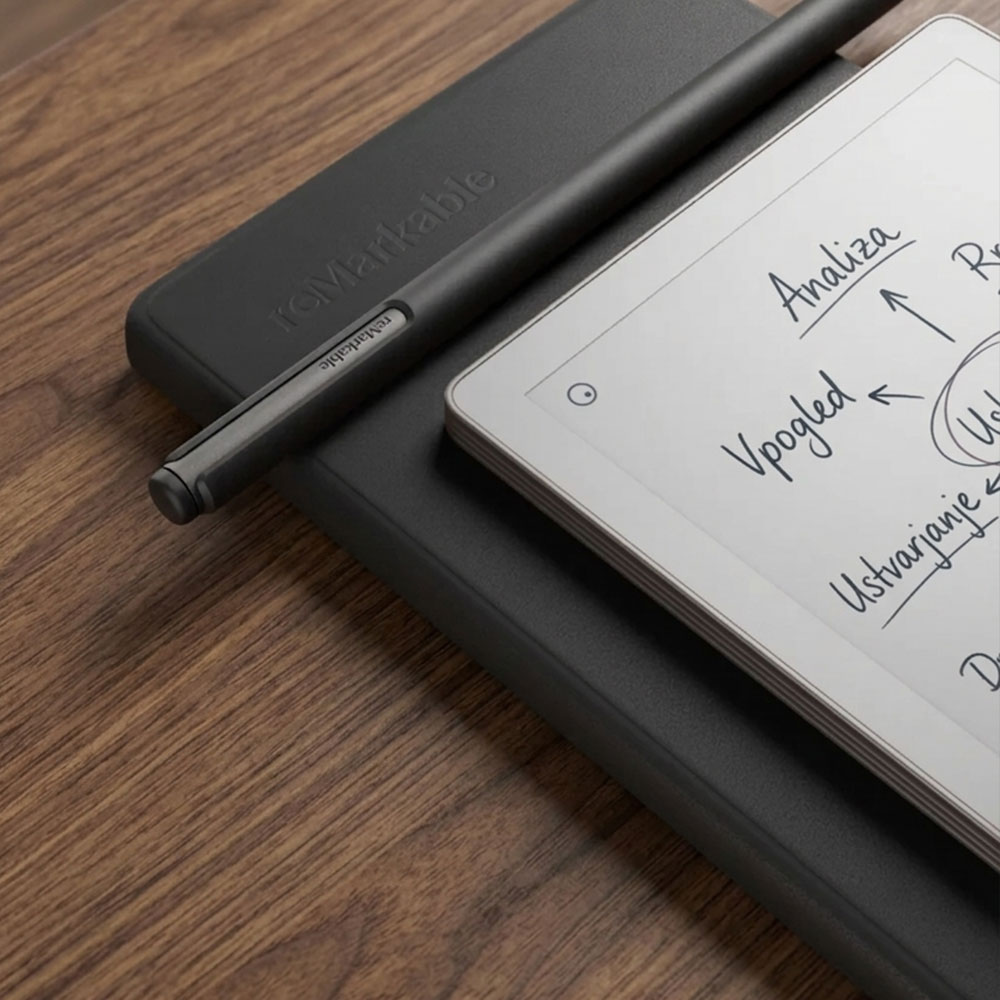 reMarkable
reMarkable
Analiza
Vpogled
Ustvarjanje